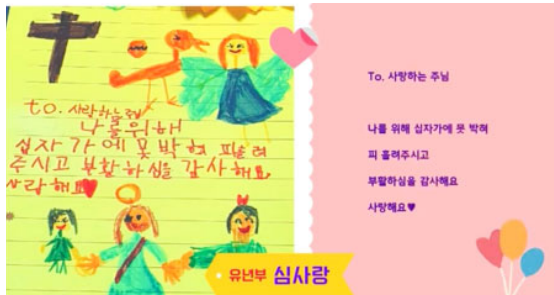 to. 사랑하는 주님
나를 위해
십자가에 못 박혀 피 흘려
주시고 부활하심을 감사해요
사랑해요♥
To. 사랑하는 주님
나를 위해 십자가에 못 박혀
피 흘려주시고
부활하심을 감사해요
사랑해요♥
유년부 심사랑